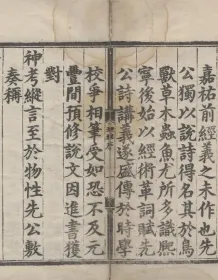 嘉祐前經義之未作也先
公獨以說詩得名其於鳥
獸草木蟲魚尤所多識熙
寧後始以經術革詞賦先
公詩講義遂盛傳於時學
序
校爭相筆受如恐不及元
豐間預修說文因進書獲
對
神考縱言至於物性先公敷
奏稱